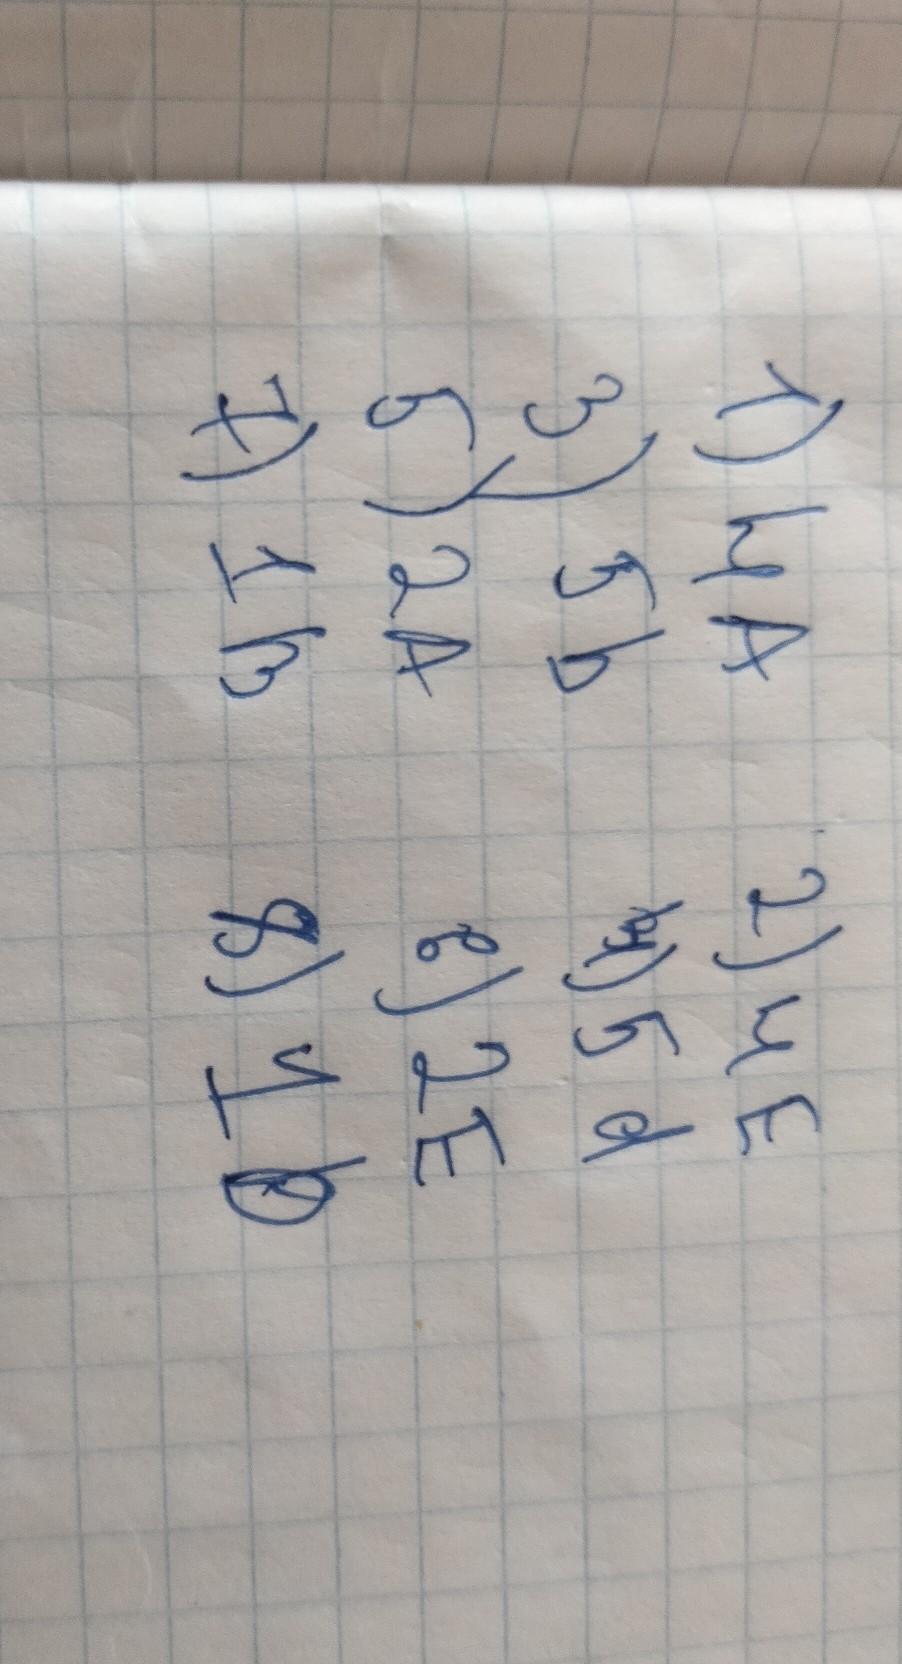 1) 4A 2) 4E
3) 5b 4) 5d
5) 2A 6) 2E
7) 1b 8) 1D